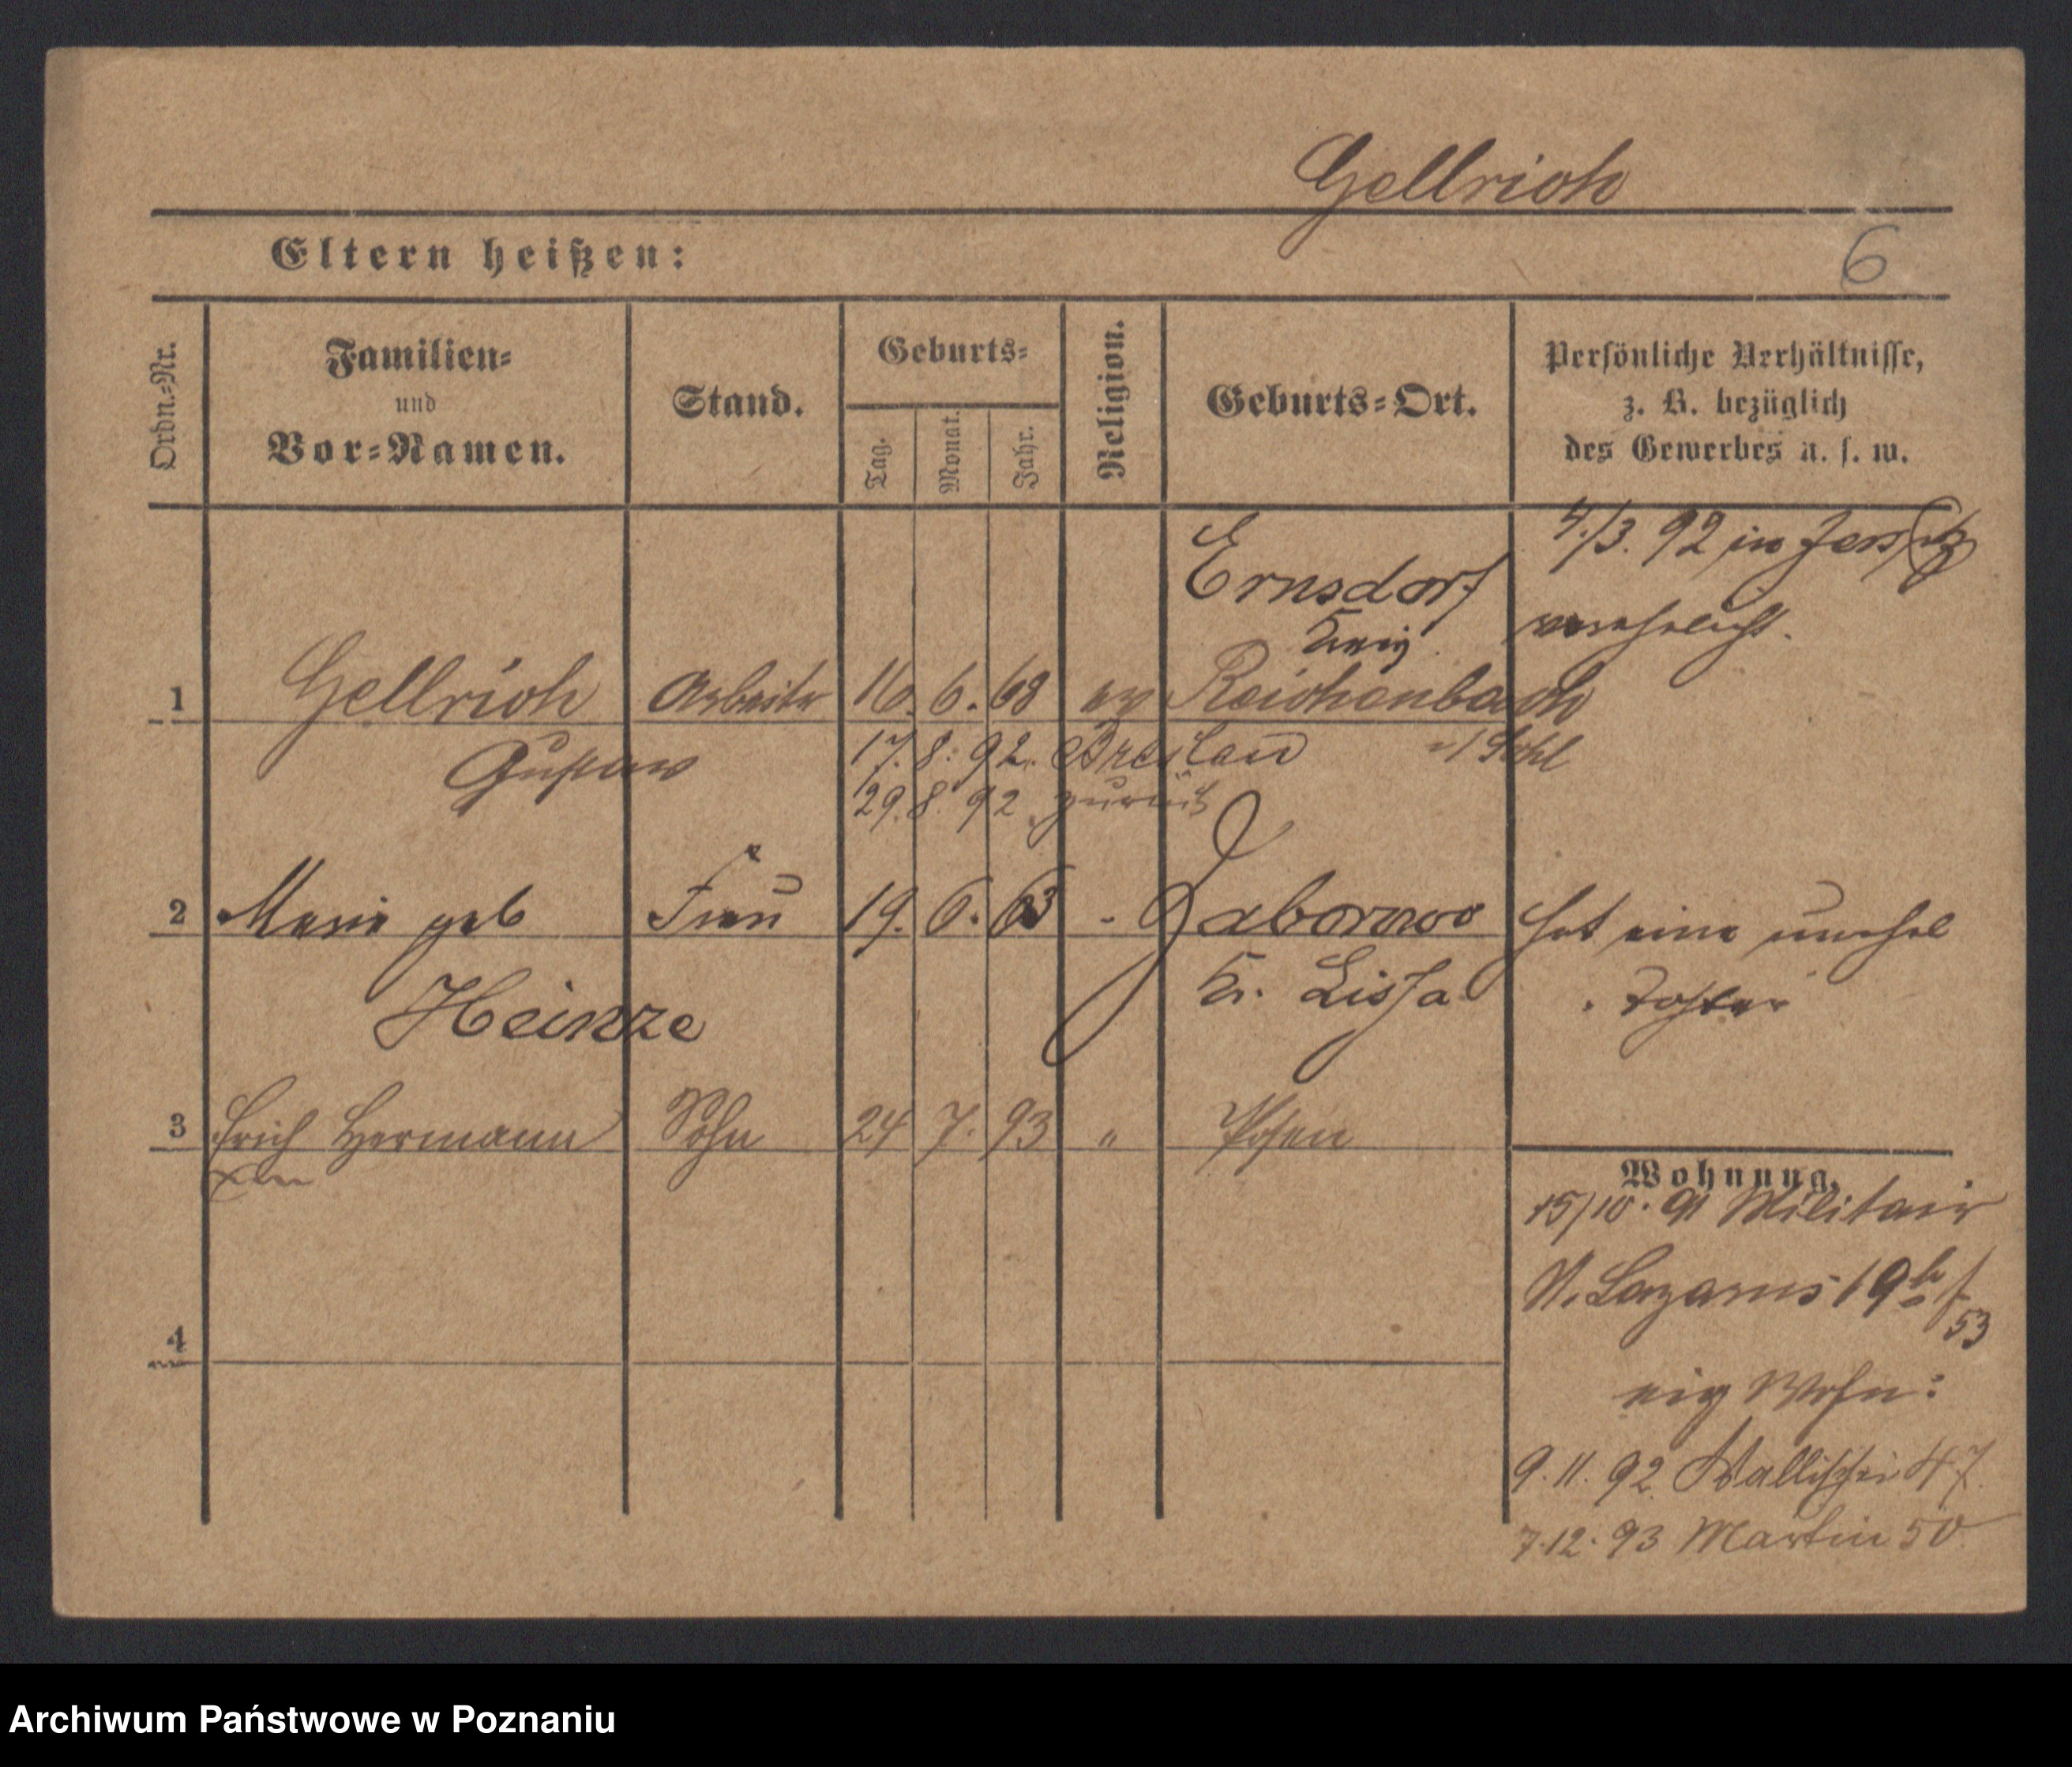 Gellrich
Eltern heißen:
6
Ordn.-Nr.
Familien-
und
Vor-Namen.
Stand.
Geburts-
Tag.
Monat.
Jahr.
Religion.
Geburts-Ort.
Persönliche Verhältnisse,
z. B. bezüglich
des Gewerbes u. s. w.
4./3. 92 in Jersitz
verehelicht.
Ernsdorf
Kreis
1 Gellrich Arbeiter 16. 6. 68 ev Reichenbach
Gustav 17. 8. 92. Breslau
29. 8. 92 zurück
2 Marie geb Frau 19. 6. 63 - Zaborowo hat eine unehel
Heinze Kr. Lissa Tochter
3 Erich Hermann Sohn 24 7. 93 " Posen
Wohnung.
15/10. 91 Militair
St. Lazarus 19b/53
4
eig Wohn:
9. 11. 92. Wallischei 47.
7. 12. 93 Martin 50.
Archiwum Państwowe w Poznaniu